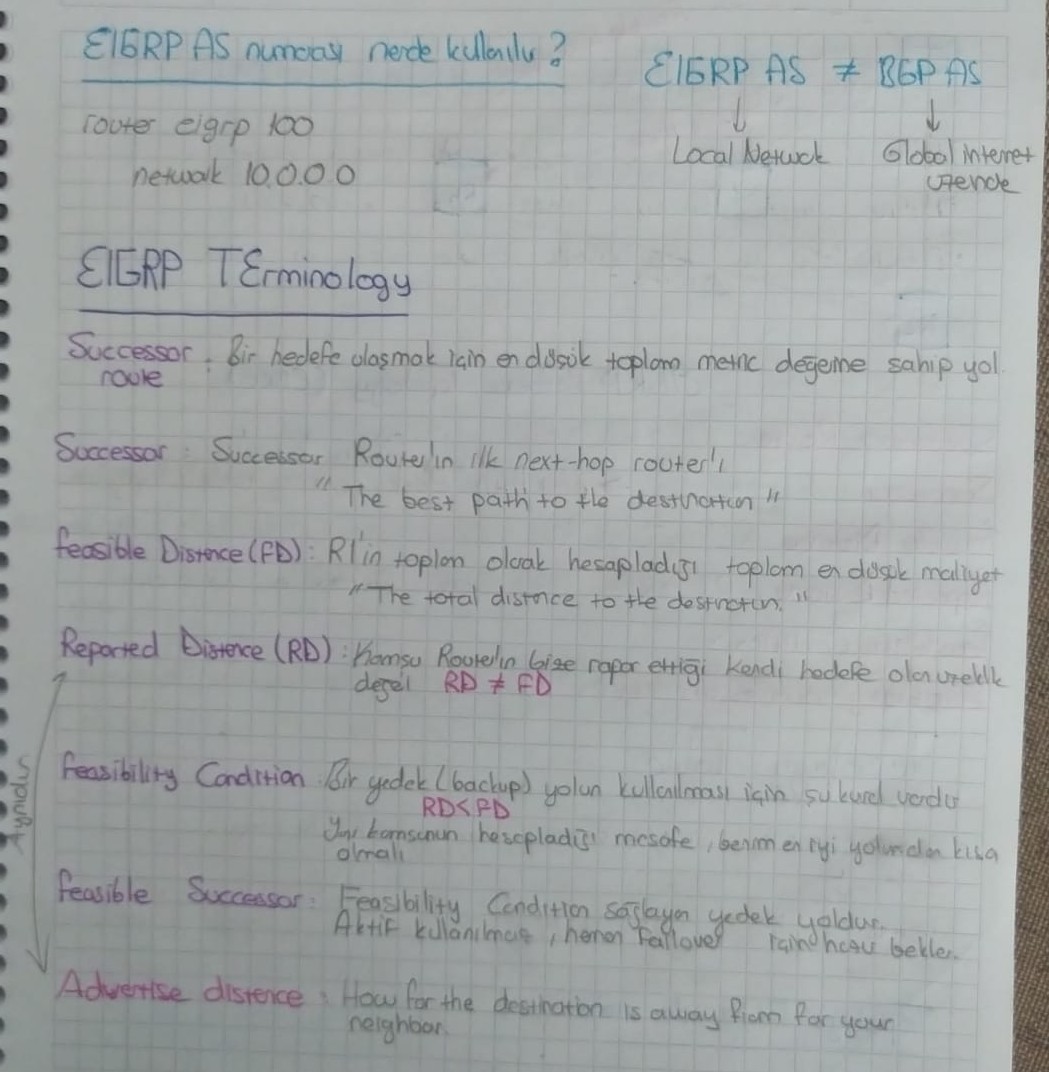 EIGRP AS numarası nerde kullanılır?
router eigrp 100
network 10.0.0.0
EIGRP AS ≠ BGP AS
↓ ↓
Local Network Global internet
üzerinde
EIGRP TErminology
Successor : Bir hedefe ulaşmak için en düşük toplam metric değerine sahip yol.
route
Successor : Successor Route'in ilk next-hop router'ı
"The best path to the destination"
feasible Distance (FD): R1'in toplam olarak hesapladığı toplam en düşük maliyet
"The total distance to the destination."
Reported Distance (RD) : Komşu Router'ın bize rapor ettiği kendi hedefe olan uzaklık
değeri RD ≠ FD
feasibility Condition : Bir yedek (backup) yolun kullanılması için şu kural vardır
RD<FD
Yani komşunun hesapladığı mesafe, benim en iyi yolundan kısa
olmalı
feasible Successor : Feasibility Condition sağlayan yedek yoldur.
Aktif kullanılmaz, hemen failover için hazır bekler.
Advertise distance : How far the destination is away from for your
neighbor.
Aynıdır